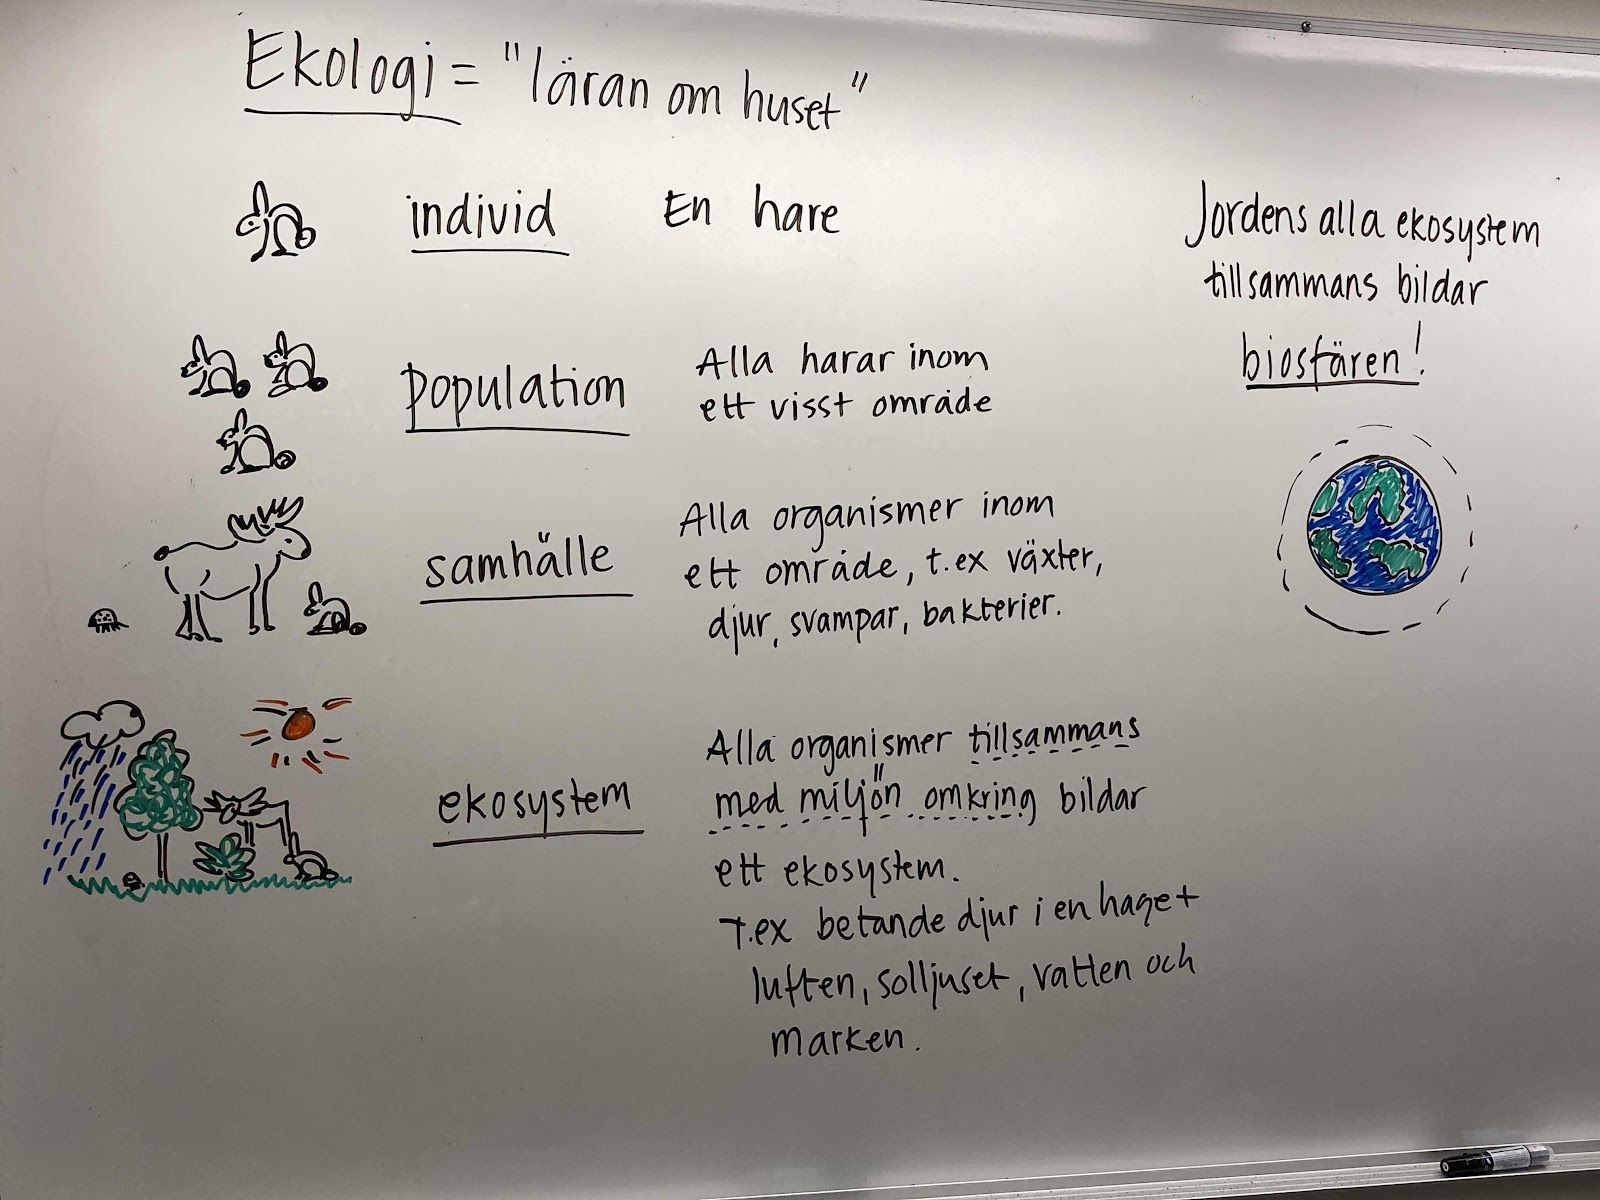 Ekologi = "läran om huset"
individ En hare
population Alla harar inom
ett visst område
samhälle Alla organismer inom
ett område, t.ex växter,
djur, svampar, bakterier.
ekosystem Alla organismer tillsammans
med miljön omkring bildar
ett ekosystem.
T.ex betande djur i en hage +
luften, solljuset, vatten och
marken.
Jordens alla ekosystem
tillsammans bildar
biosfären!